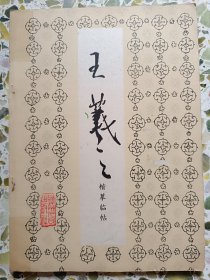 王羲之
楷摹临帖